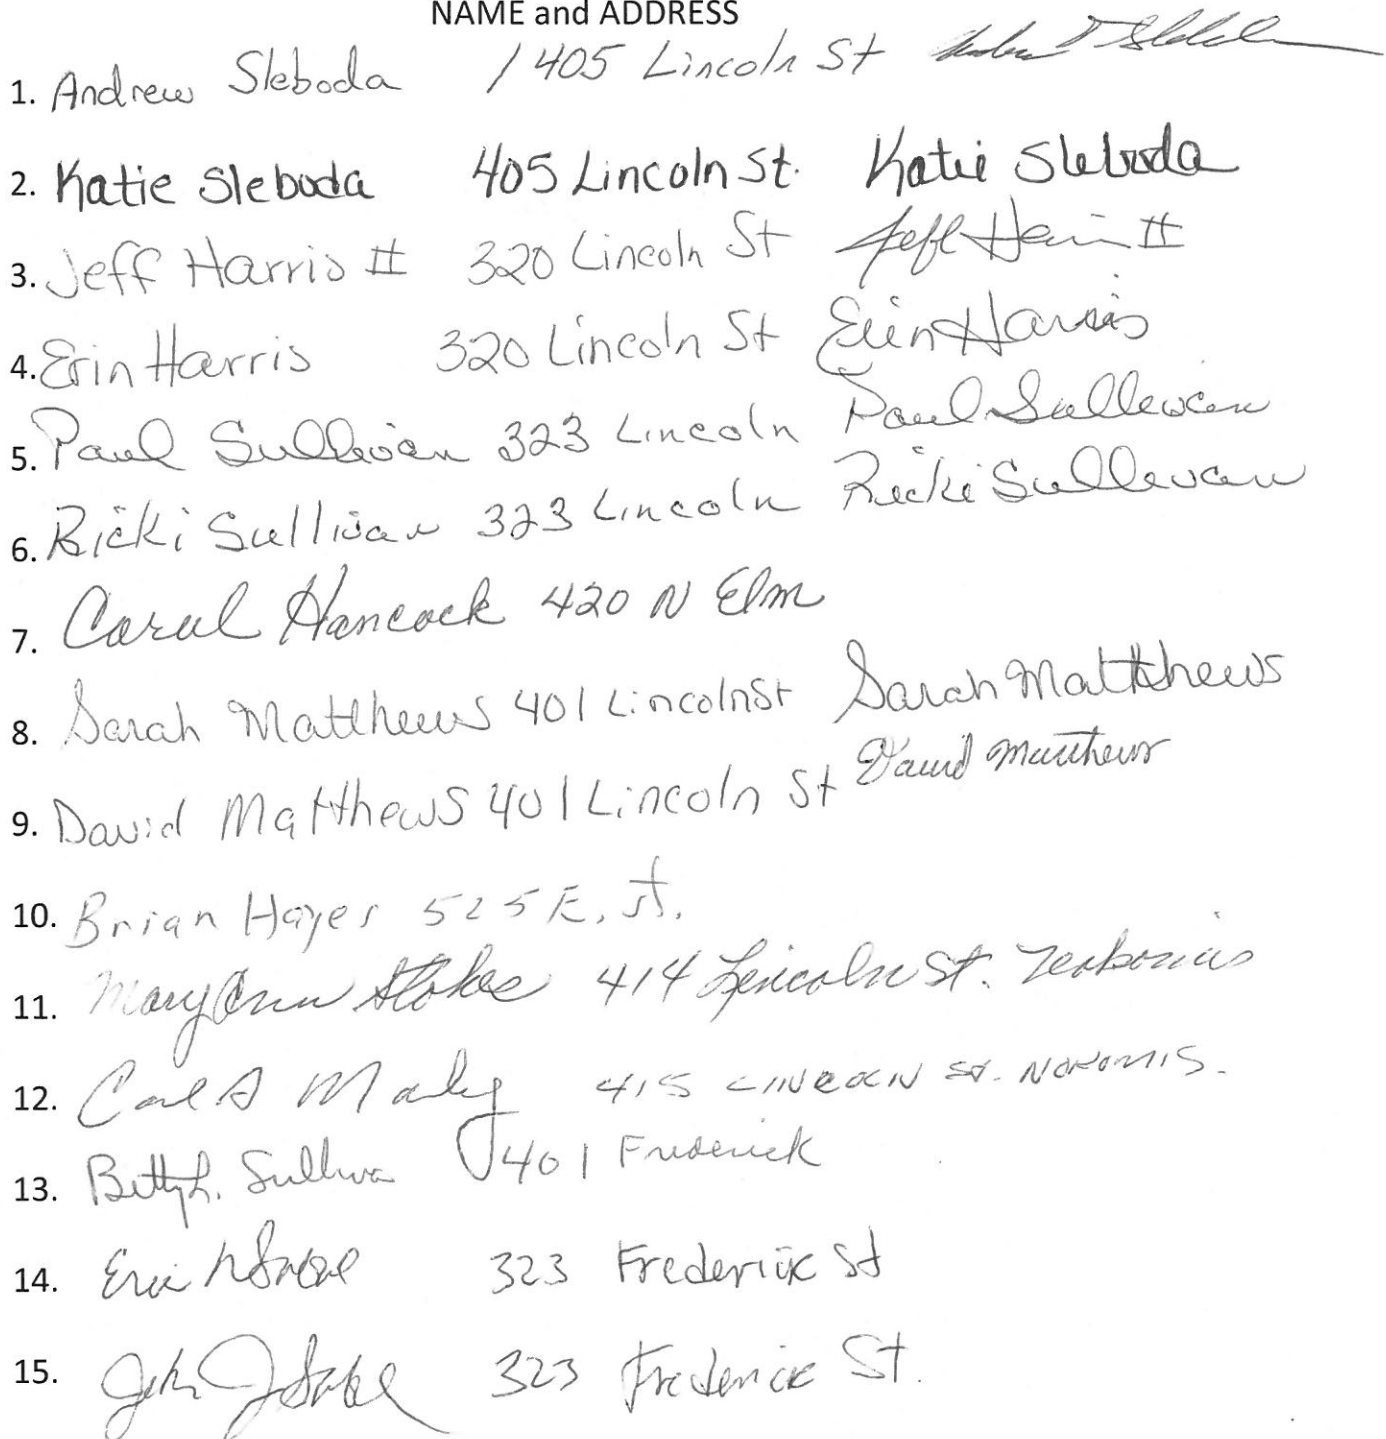 NAME and ADDRESS
1. Andrew Sleboda / 405 Lincoln St
2. Katie Sleboda 405 Lincoln St. Katie Sleboda
3. Jeff Harris II 320 Lincoln St Jeff Harris II
4. Erin Harris 320 Lincoln St Erin Harris
5. Paul Sullivan 323 Lincoln Paul Sullivan
6. Ricki Sullivan 323 Lincoln Ricki Sullivan
7. Carol Hancock 420 N Elm
8. Sarah Matthews 401 Lincoln St Sarah Matthews
9. David Matthews 401 Lincoln St David Matthews
10. Brian Hayes 525 E. St.
11. Mary Ann Stokes 414 Lincoln St.
12. Carl 415 LINCOLN ST. NOKOMIS.
13. Betty L. 401 Frederick
14. 323 Frederick St
15. John J 323 Frederick St.